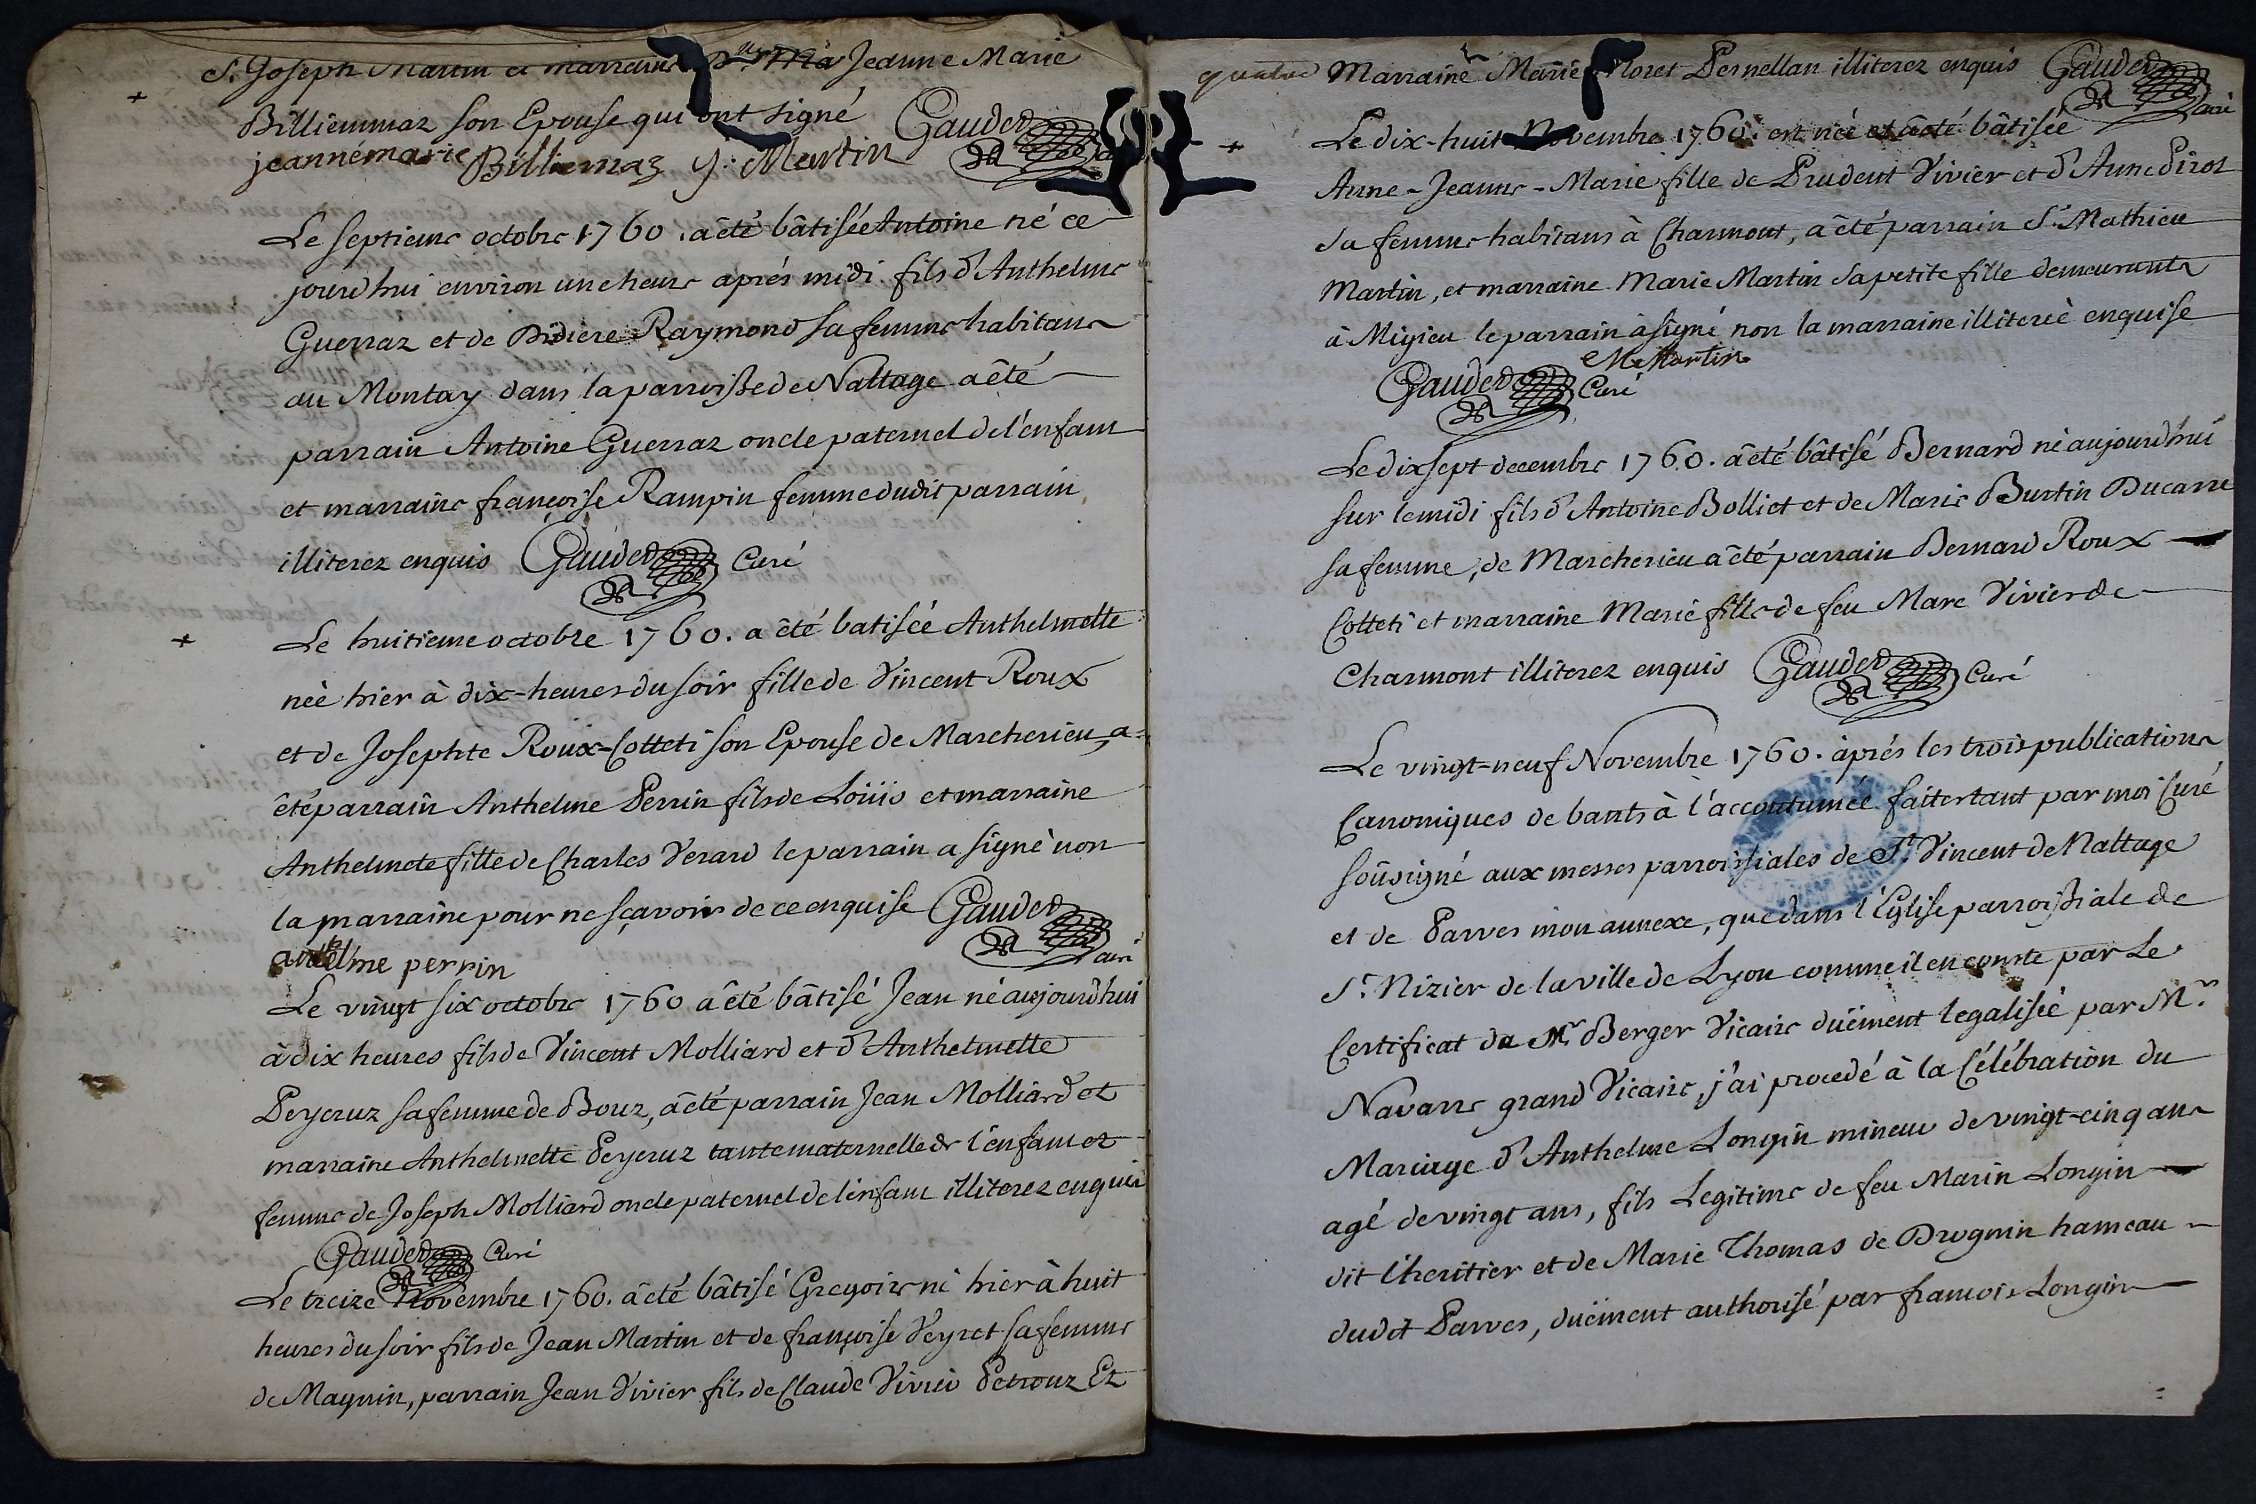 Sr. Joseph Martin et marraine Jeanne Marie
Billiemmaz son Epouse qui ont signé Gauder
jeannémarie Billiemaz J: Martin
Le septieme octobre 1760. a êté bâtisée Antoine né ce
jourdhui environ une heure aprés midi fils d'Anthelme
Guerraz et de Didiere Raymond sa femme habitans
au Montay dans la parroisse de Nattage a êté
parrain Antoine Guerraz oncle paternel de l'enfant
et marraine françoise Rampin femme dudit parrain
illiterez enquis Gauder Curé
+ Le huitieme octobre 1760. a êté batiséé Anthelmette
néè hier à dix-heures du soir fille de Vincent Roux
et de Josephte Roux-Cotteti son Epouse de Marcherieu, a
êté parrain Anthelme Perrin fils de Loüis et marraine
Anthelmete fille de Charles Verard le parrain a signè non
la marraine pour ne sçavoir de ce enquise Gauder
antelme perrin curé
Le vingt six octobre 1760 a êté bâtisé Jean né aujourdhui
à dix heures fils de Vincent Molliard et d'Anthelmette
Peyeruz sa femme de Bouz, a êté parrain Jean Molliard et
marraine Anthelmette Peyeruz tante maternelle de l'enfant et
femme de Joseph Molliard oncle paternel de l'enfant illiterez enquis
Gauder Curé
Le treize Novembre 1760. a êté bâtisé Gregoire né hier à huit
heures du soir fils de Jean Martin et de françoise Veyret sa femme
de Magnin, parrain Jean Vivier fils de Claude Vivier Petrouz Et
quatre Marraine Marie floret Pernellan illiterez enquis Gauder
curé
+ Le dix-huit Novembre 1760. est néè et a êté bâtiséé
Anne-Jeanne-Marie fille de Prudent Vivier et d'Anne Pirot
sa femme habitans à Charmont, a êté parrain Sr. Mathieu
Martin, et marraine Marie Martin sa petite fille demeurants
à Migieu le parrain a signé non la marraine illitereè enquise
M Martin
Gauder Curé
Le dix sept decembre 1760. a êté bâtisé Bernard né aujourdhui
sur le midi fils d'Antoine Bolliet et de Marie Burtin Ducarre
sa femme, de Marcherieu a êté parrain Bernard Roux
Cotteti et marraine Marie fille de feu Marc Vivier de
Charmont illiterez enquis Gauder Curé
Le vingt-neuf Novembre 1760. aprés les trois publications
Canoniques de bants à l'accoutuméé faites tant par moi Curé
soûsigné aux messes parroissiales de St. Vincent de Nattage
et de Parves mon annexe, que dans l'Eglise parroissiale de
St. Nizier de la ville de Lyon comme il en conste par Le
Certificat du Mr Berger Vicaire duëment legaliséé par Mr.
Navarre grand Vicaire, j'ai procedé à la Célébration du
Mariage d'Anthelme Longin mineur de vingt-cinq ans
agé de vingt ans, fils Legitime de feu Marin Longin
dit L'heritier et de Marie Thomas de Drognin hameau
dudit Parves, duëment authorisé par francois Longin